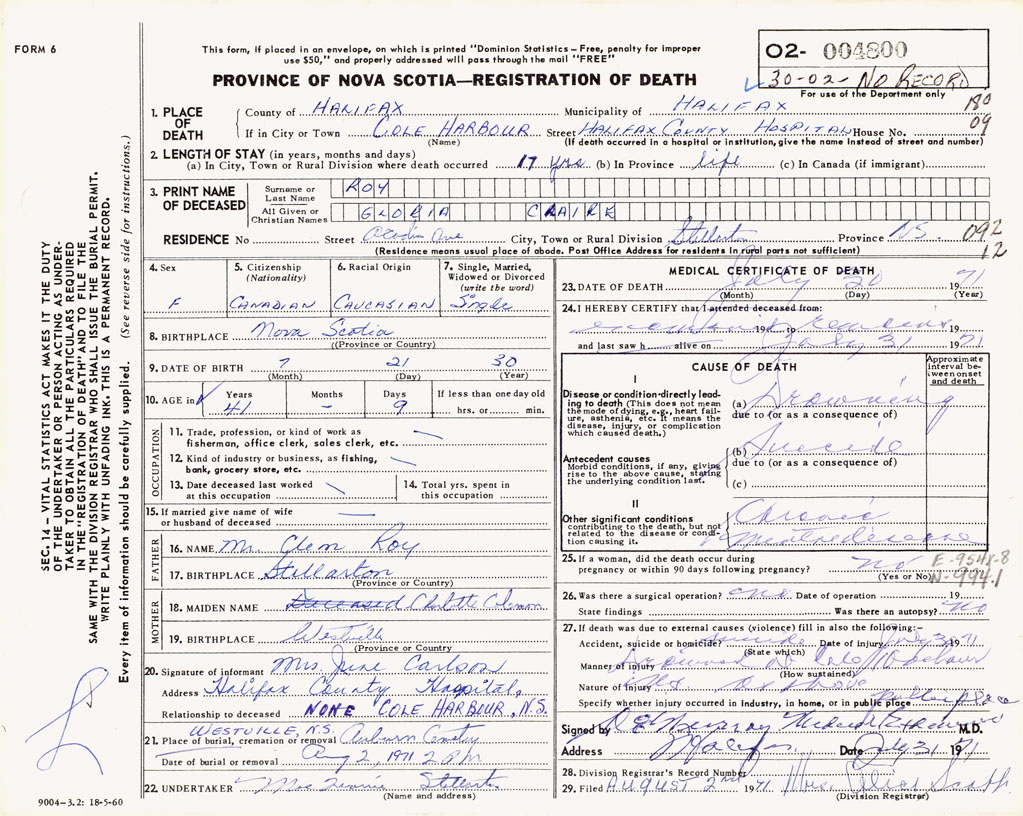 FORM 6
This form, if placed in an envelope, on which is printed "Dominion Statistics – Free, penalty for improper
use $50," and properly addressed will pass through the mail "FREE"
PROVINCE OF NOVA SCOTIA—REGISTRATION OF DEATH
O2- 004800
30-02- NO RECORD
For use of the Department only
180
09
1. PLACE OF DEATH
County of HALIFAX Municipality of HALIFAX
If in City or Town COLE HARBOUR Street HALIFAX COUNTY HOSPITAL House No.
(Name) (If death occurred in a hospital or institution, give the name instead of street and number)
2. LENGTH OF STAY (in years, months and days)
(a) In City, Town or Rural Division where death occurred 17 yrs (b) In Province life (c) In Canada (if immigrant)
3. PRINT NAME OF DECEASED
Surname or Last Name ROY
All Given or Christian Names GLORIA CLAIRE
RESIDENCE No Street Acadia Ave City, Town or Rural Division Stellarton Province NS
092
12
(Residence means usual place of abode. Post Office Address for residents in rural parts not sufficient)
4. Sex F
5. Citizenship (Nationality) CANADIAN
6. Racial Origin CAUCASIAN
7. Single, Married, Widowed or Divorced (write the word) Single
8. BIRTHPLACE Nova Scotia
(Province or Country)
9. DATE OF BIRTH 7 21 30
(Month) (Day) (Year)
10. AGE in Years 41 Months – Days 9 If less than one day old hrs. or min.
OCCUPATION
11. Trade, profession, or kind of work as
fisherman, office clerk, sales clerk, etc. —
12. Kind of industry or business, as fishing,
bank, grocery store, etc. —
13. Date deceased last worked
at this occupation —
14. Total yrs. spent in
this occupation
15. If married give name of wife
or husband of deceased —
FATHER
16. NAME Mr. Clem Roy
17. BIRTHPLACE Stellarton
(Province or Country)
MOTHER
18. MAIDEN NAME Deceased Charlotte
19. BIRTHPLACE Westville
(Province or Country)
20. Signature of informant Mrs. June Carlson
Address Halifax County Hospital,
Relationship to deceased NONE COLE HARBOUR, N.S.
WESTVILLE, N.S.
21. Place of burial, cremation or removal Auburn Cemetery
Date of burial or removal Aug 2, 1971 2 pm
22. UNDERTAKER Stellarton
(Name and address)
MEDICAL CERTIFICATE OF DEATH
23. DATE OF DEATH July 30 1971
(Month) (Day) (Year)
24. I HEREBY CERTIFY that I attended deceased from:
19 to remains 19
and last saw h alive on July 31 1971
CAUSE OF DEATH
Approximate interval between onset and death
I
Disease or condition directly leading to death (This does not mean the mode of dying, e.g., heart failure, asthenia, etc. It means the disease, injury, or complication which caused death.)
(a) Drowning
due to (or as a consequence of)
Antecedent causes
Morbid conditions, if any, giving rise to the above cause, stating the underlying condition last.
(b) Suicide
due to (or as a consequence of)
(c)
II
Other significant conditions
contributing to the death, but not related to the disease or condition causing it.
Chronic
25. If a woman, did the death occur during
pregnancy or within 90 days following pregnancy? no
(Yes or No)
E-954X-8
N-994.1
26. Was there a surgical operation? No Date of operation 19
State findings Was there an autopsy? No
27. If death was due to external causes (violence) fill in also the following:–
Accident, suicide or homicide? Suicide Date of injury July 30 1971
(State which)
Manner of injury Drowned in Cole Harbour
(How sustained)
Nature of injury As above
Specify whether injury occurred in industry, in home, or in public place Public Place
Signed by Medical Examiner M.D.
Address Halifax Date July 31 1971
28. Division Registrar's Record Number
29. Filed AUGUST 2nd 1971 Mrs.
(Division Registrar)
SEC. 14 – VITAL STATISTICS ACT MAKES IT THE DUTY
OF THE UNDERTAKER OR PERSON ACTING AS UNDER-
TAKER TO OBTAIN ALL THE PARTICULARS REQUIRED
IN THE "REGISTRATION OF DEATH" AND TO FILE THE
SAME WITH THE DIVISION REGISTRAR WHO SHALL ISSUE THE BURIAL PERMIT.
WRITE PLAINLY WITH UNFADING INK. THIS IS A PERMANENT RECORD.
Every item of information should be carefully supplied. (See reverse side for instructions.)
9004–3.2: 18-5-60